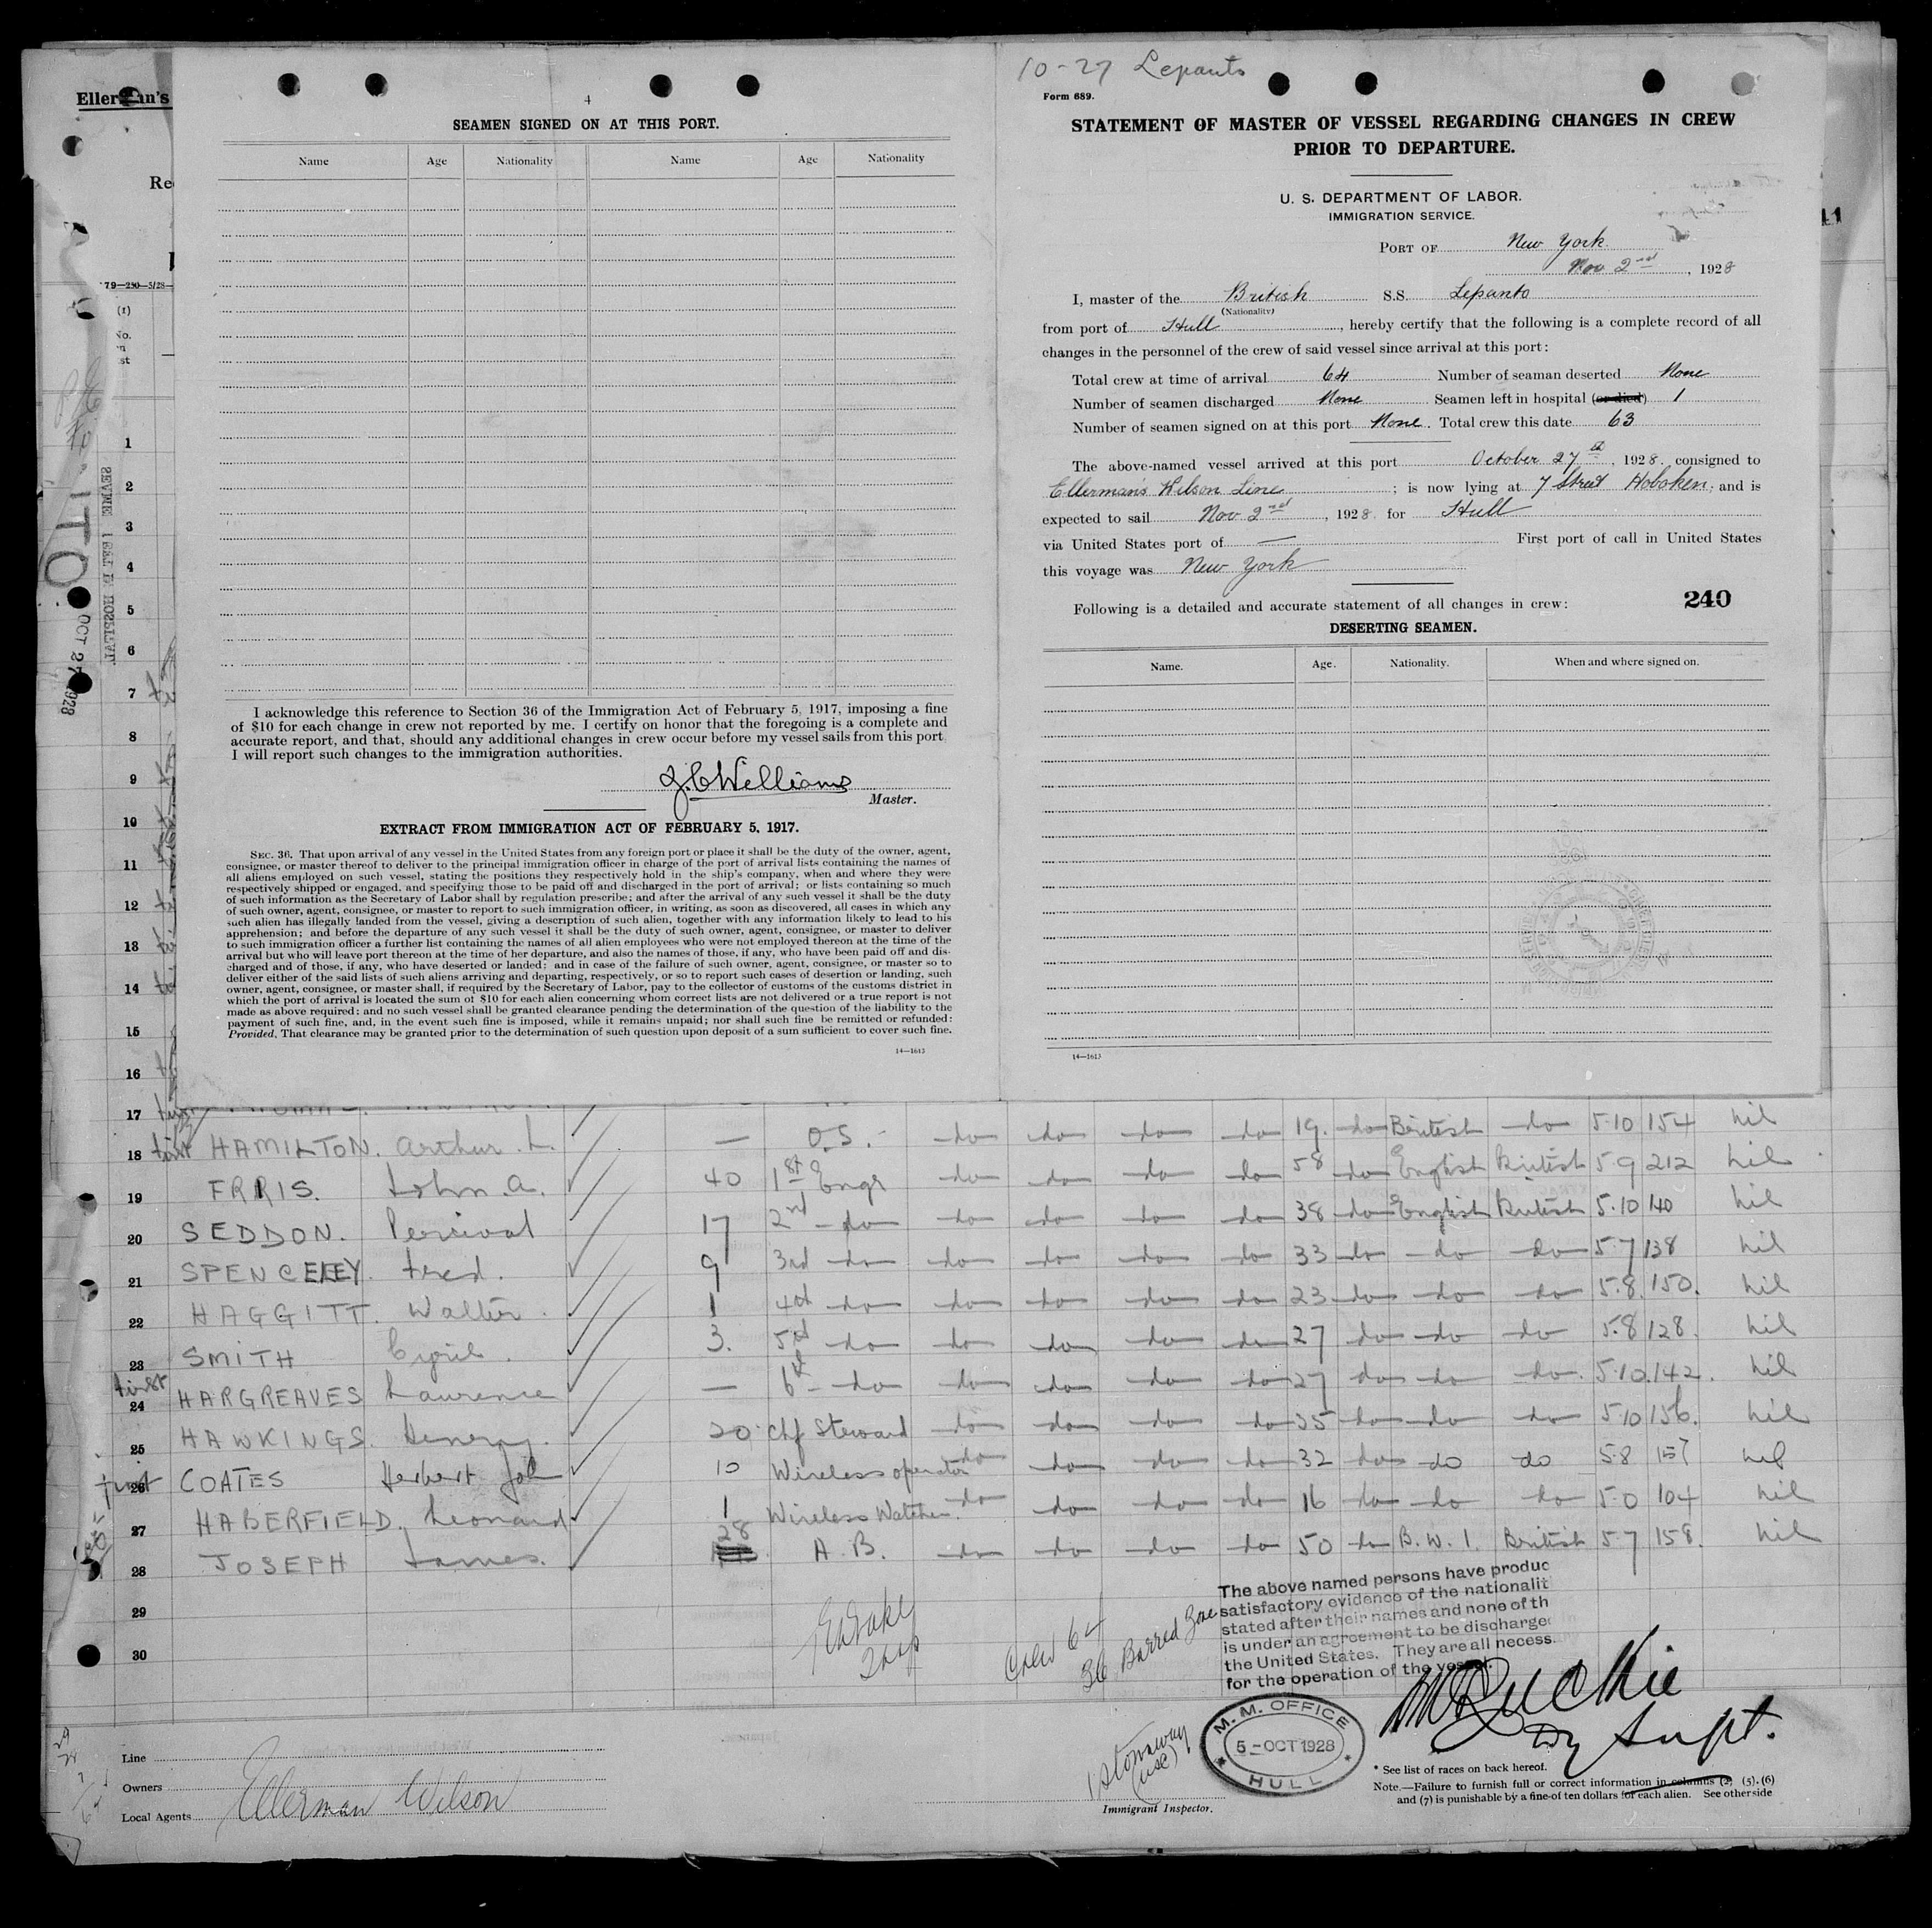 Ellerman's
Re
79—230—5/28—
(1)
No.
SEAMEN SIGNED ON AT THIS PORT.
4
Name Age Nationality Name Age Nationality
I acknowledge this reference to Section 36 of the Immigration Act of February 5, 1917, imposing a fine
of $10 for each change in crew not reported by me. I certify on honor that the foregoing is a complete and
accurate report, and that, should any additional changes in crew occur before my vessel sails from this port
I will report such changes to the immigration authorities.
J.C. Williams
Master.
EXTRACT FROM IMMIGRATION ACT OF FEBRUARY 5, 1917.
SEC. 36. That upon arrival of any vessel in the United States from any foreign port or place it shall be the duty of the owner, agent,
consignee, or master thereof to deliver to the principal immigration officer in charge of the port of arrival lists containing the names of
all aliens employed on such vessel, stating the positions they respectively hold in the ship's company, when and where they were
respectively shipped or engaged, and specifying those to be paid off and discharged in the port of arrival; or lists containing so much
of such information as the Secretary of Labor shall by regulation prescribe; and after the arrival of any such vessel it shall be the duty
of such owner, agent, consignee, or master to report to such immigration officer, in writing, as soon as discovered, all cases in which any
such alien has illegally landed from the vessel, giving a description of such alien, together with any information likely to lead to his
apprehension; and before the departure of any such vessel it shall be the duty of such owner, agent, consignee, or master to deliver
to such immigration officer a further list containing the names of all alien employees who were not employed thereon at the time of the
arrival but who will leave port thereon at the time of her departure, and also the names of those, if any, who have been paid off and dis-
charged and of those, if any, who have deserted or landed; and in case of the failure of such owner, agent, consignee, or master so to
deliver either of the said lists of such aliens arriving and departing, respectively, or so to report such cases of desertion or landing, such
owner, agent, consignee, or master shall, if required by the Secretary of Labor, pay to the collector of customs of the customs district in
which the port of arrival is located the sum of $10 for each alien concerning whom correct lists are not delivered or a true report is not
made as above required; and no such vessel shall be granted clearance pending the determination of the question of the liability to the
payment of such fine, and, in the event such fine is imposed, while it remains unpaid; nor shall such fine be remitted or refunded:
Provided, That clearance may be granted prior to the determination of such question upon deposit of a sum sufficient to cover such fine.
14—1613
10-27 Lepanto
Form 689.
STATEMENT OF MASTER OF VESSEL REGARDING CHANGES IN CREW
PRIOR TO DEPARTURE.
U. S. DEPARTMENT OF LABOR.
IMMIGRATION SERVICE.
PORT OF New York
Nov 2nd, 1928
I, master of the British S.S. Lepanto
(Nationality)
from port of Hull, hereby certify that the following is a complete record of all
changes in the personnel of the crew of said vessel since arrival at this port:
Total crew at time of arrival 64 Number of seaman deserted None
Number of seamen discharged None Seamen left in hospital (or died) 1
Number of seamen signed on at this port None. Total crew this date 63
The above-named vessel arrived at this port October 27th, 1928. consigned to
Ellerman's Wilson Line; is now lying at 7 Street Hoboken; and is
expected to sail Nov 2nd, 1928. for Hull
via United States port of — First port of call in United States
this voyage was New York
Following is a detailed and accurate statement of all changes in crew: 240
DESERTING SEAMEN.
Name. Age. Nationality. When and where signed on.
14—1613
OCT 27 1928
1
2
3
4
5
6
7
8
9
10
11
12
13
14
15
16
17
18 first HAMILTON. Arthur. L. — O.S. do do do do 19. do British do 5.10 154 nil
19 FRRIS. John. A. 40 1st Engr do do do do 58 do English British 5.9 212 nil
20 SEDDON. Percival 17 2nd do do do do do 38 do English British 5.10 140 nil
21 SPENCELEY. Fred. 9 3rd do do do do do 33 do do do 5.7 138 nil
22 HAGGITT. Walter. 1 4th do do do do do 23 do do do 5.8. 150. nil
23 SMITH Cyril. 3. 5th do do do do do 27 do do do 5.8 128. nil
24 first HARGREAVES Laurence — 6th do do do do do 27 do do do. 5.10. 142. nil
25 HAWKINGS. Henry. 20 Chf Steward do do do do 35 do do do 5.10 156. nil
26 first COATES Herbert John 10 Wireless operator do do do do 32 do do do 5.8 157 nil
27 HABERFIELD. Leonard 1 Wireless Watcher. do do do do 16 do do do 5.0 104 nil
28 JOSEPH James. 28 A.B. do do do do 50 do B.W.I. British 5.7 158. nil
29
30
Crew 64
36 Barred Zone
The above named persons have produc
satisfactory evidence of the nationalit
stated after their names and none of th
is under an agreement to be discharge
the United States. They are all necess
for the operation of the vessel.
Dy Supt.
M. M. OFFICE
5-OCT 1928
HULL
1 Stowaway
(USC)
Immigrant Inspector.
Line
Owners
Local Agents Ellerman Wilson
* See list of races on back hereof.
NOTE.—Failure to furnish full or correct information in columns (2) (5). (6)
and (7) is punishable by a fine of ten dollars for each alien. See other side